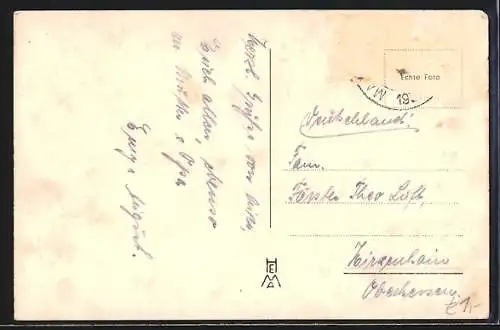 Herzl. Grüße von hier,
Euch allen, ebenso
an Mutter & Opa
August.
Echte Foto
19
Deutschland!
Fam.
Förster Theo Luft,
Hirzenhain
Oberhessen
HEMA